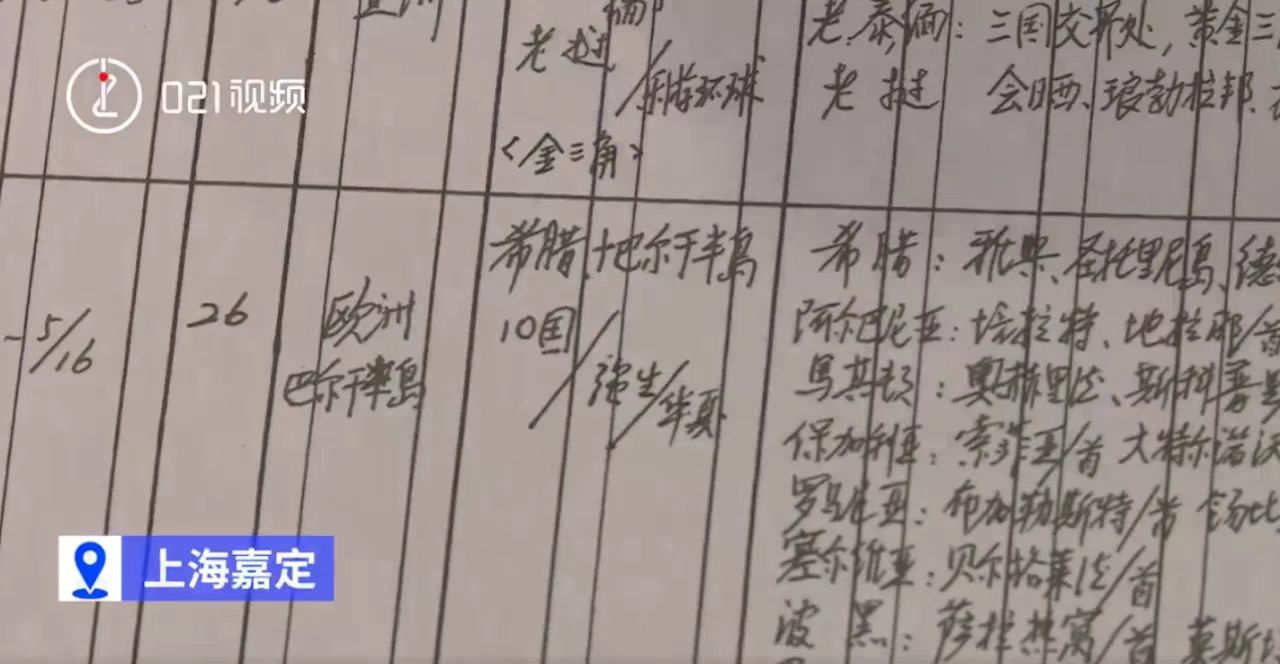 老挝
/乐游环球
<金三角>
老.泰.缅：三国交界处，黄金三
老 挝 会晒、琅勃拉邦、
021视频
-5/16
26
欧洲
巴尔干半岛
希腊、巴尔干半岛
10国/
强生/华夏
希 腊：雅典、圣托里尼岛、德
阿尔巴尼亚：培拉特、地拉那/首
马其顿：奥赫里德、斯科普里
保加利亚：索非亚/首 大特尔诺沃
罗马尼亚：布加勒斯特/首
塞尔维亚：贝尔格莱德/首
波 黑：萨拉热窝/首 莫斯塔
上海嘉定